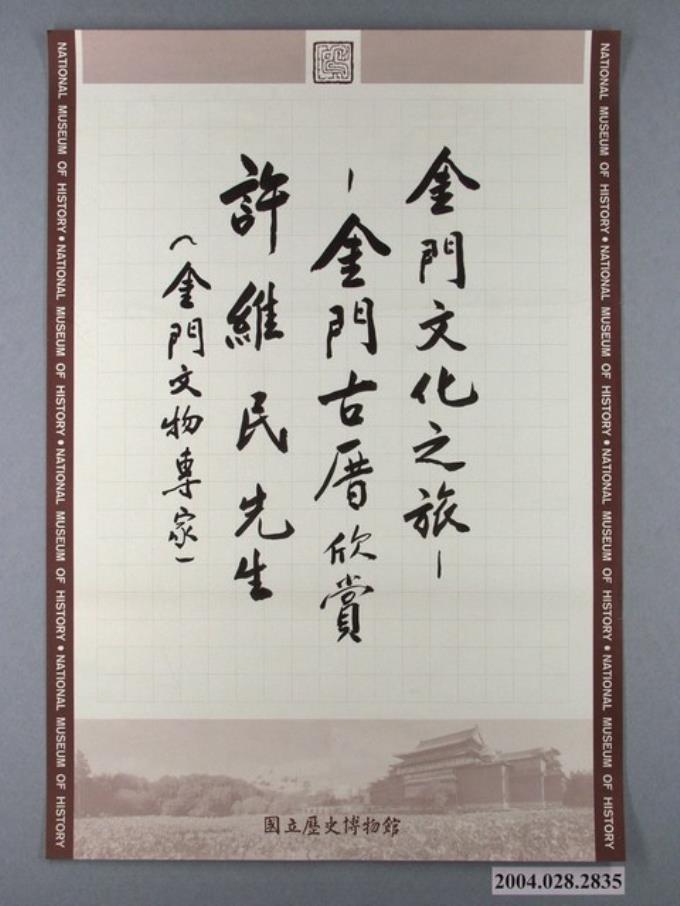 金門文化之旅－
－金門古厝欣賞
許維民先生
（金門文物專家）
國立歷史博物館
NATIONAL MUSEUM OF HISTORY • NATIONAL MUSEUM OF HISTORY • NATIONAL MUSEUM OF HISTORY • NATIONAL MUSEUM OF HISTORY
NATIONAL MUSEUM OF HISTORY • NATIONAL MUSEUM OF HISTORY • NATIONAL MUSEUM OF HISTORY • NATIONAL MUSEUM OF HISTORY
2004.028.2835